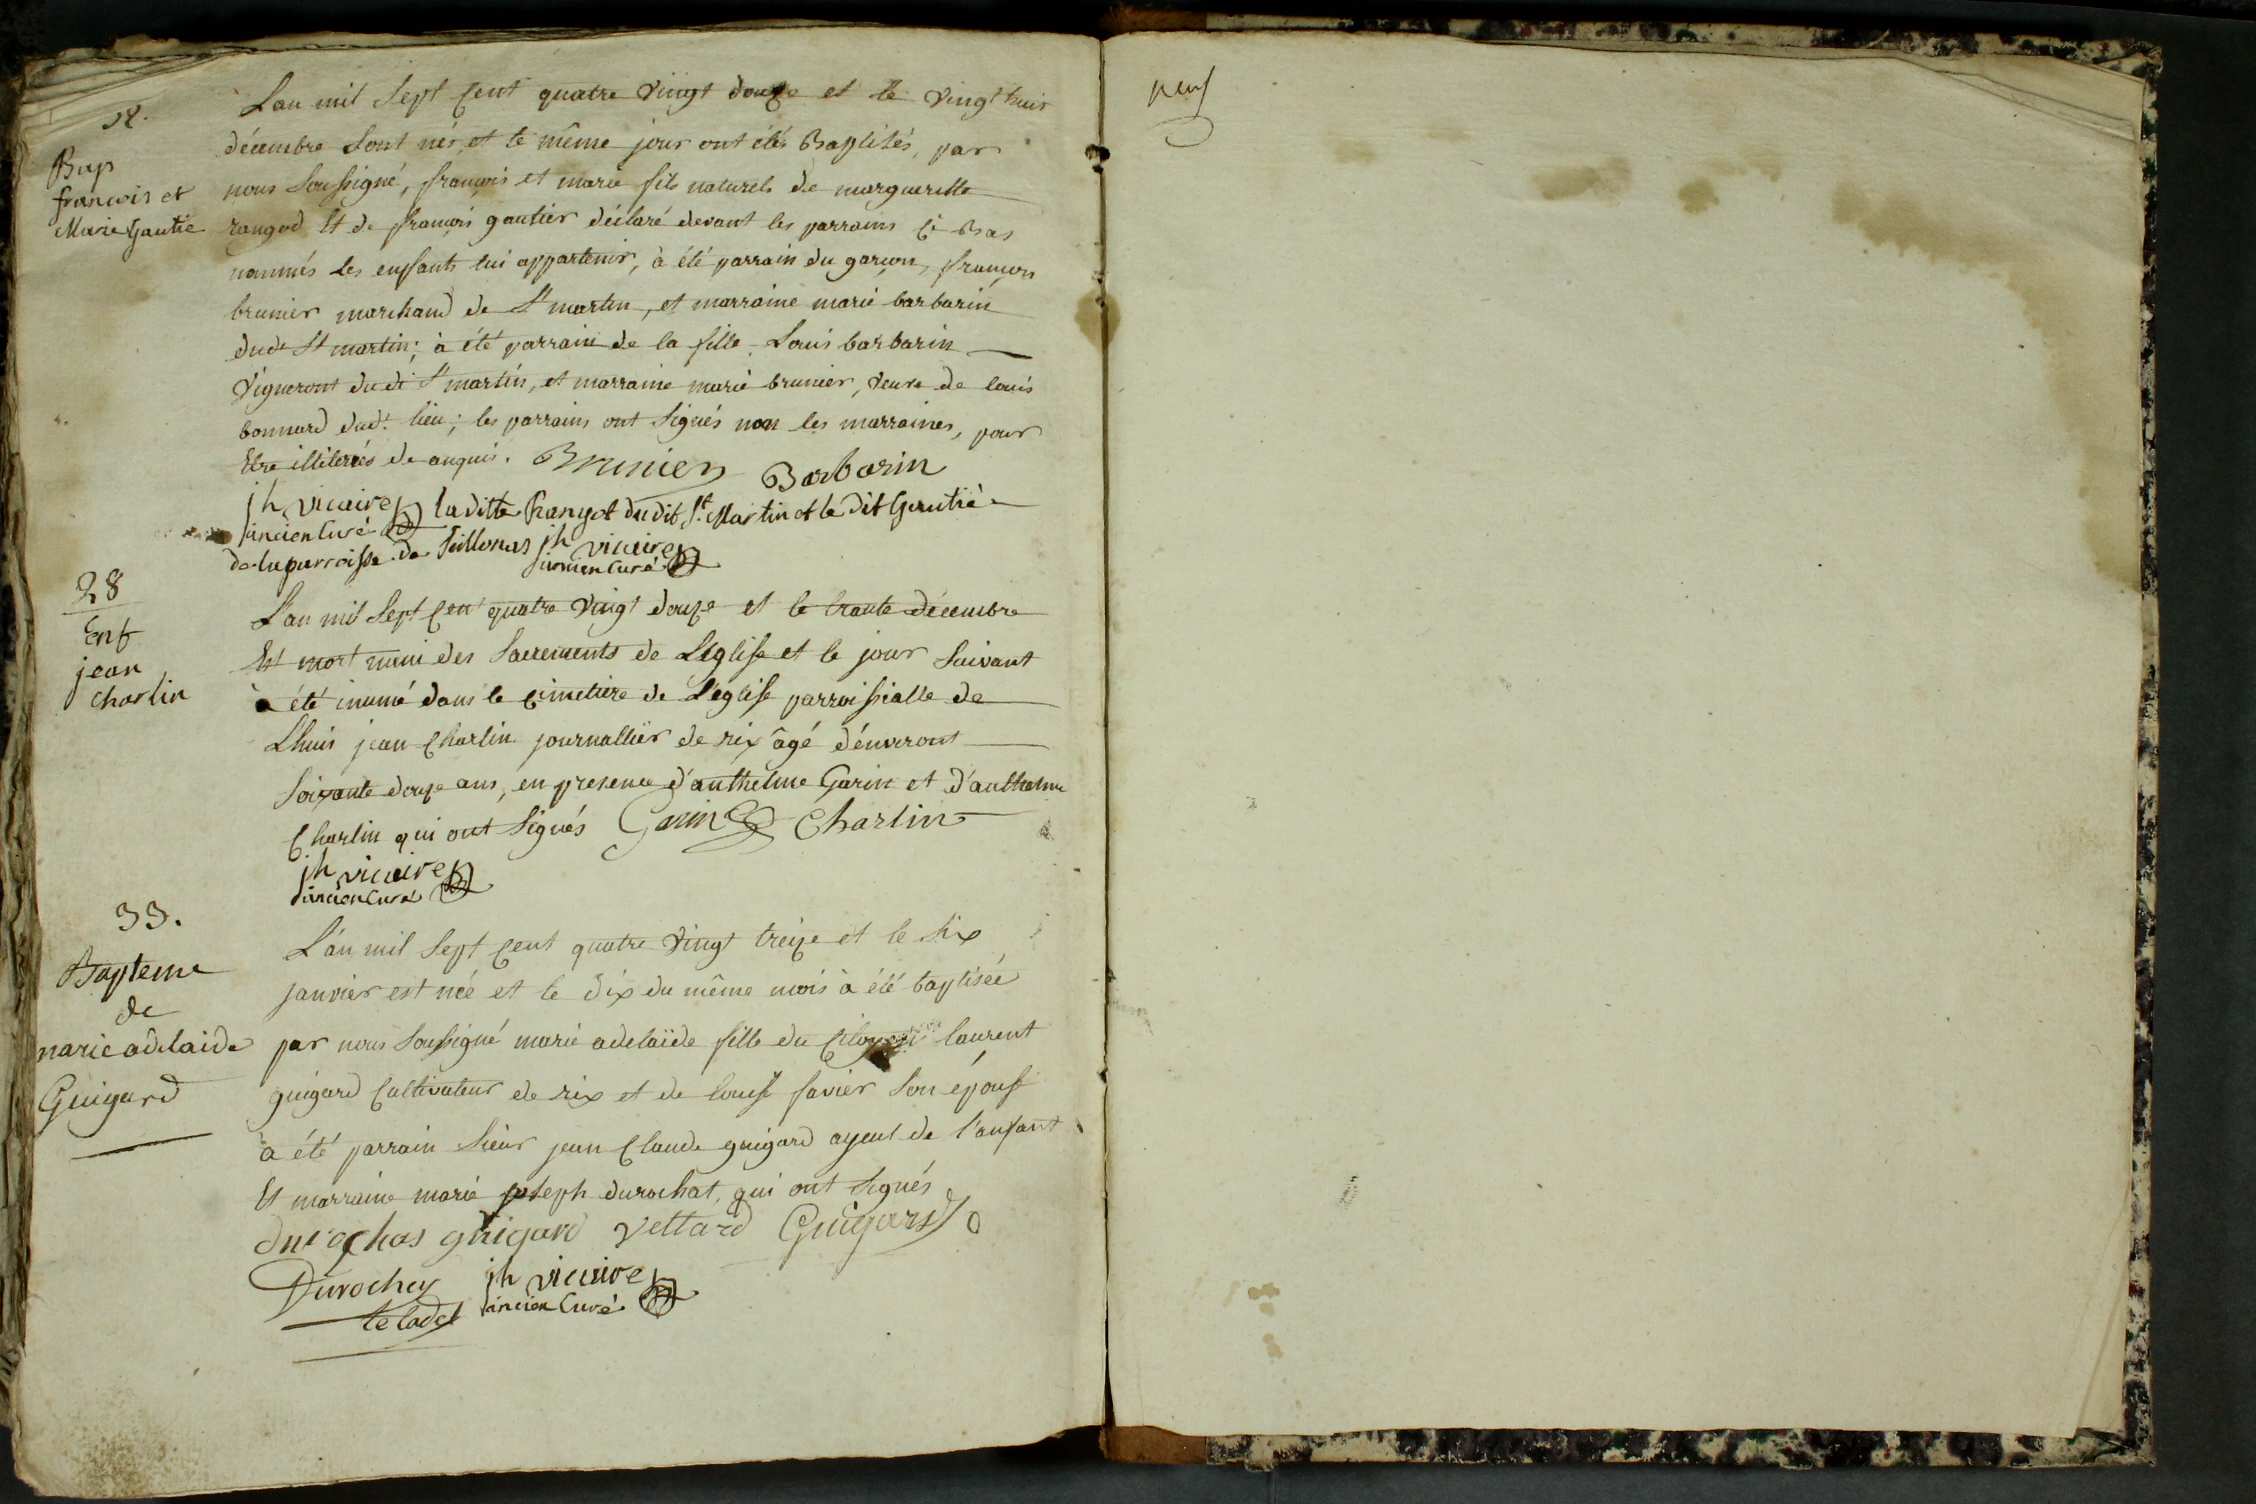 32.
Bap
francois et
Marie Gautié
L'an mil sept cent quatre vingt douze et le vingt huit
décembre sont nés, et le même jour ont étés Baptisés, par
nous soussigné, françois et marie fils naturels de margueritte
rangod et de françois gautier déclaré devant les parrains ci Bas
nommés les enfants lui appartenir, à été parrain du garçon, françois
brunier marchand de St martin, et marraine marie barbarin
dudt St martin; à été parrain de la fille Louis barbarin
Vigneront du dt St martin, et marraine marie brunier, veuve de louis
bonnard dudt. lieu; les parrains ont signés non les marraines, pour
Etre illiterées de enquis. Brunier Barbarin
jh vicaire la ditte Rangot du dit St. Martin et le dit Gautié
ancien Curé
de la parroisse de Seillonas jh vicaire
ancien Curé
28
Enf
jean
charlin
L'an mil sept cent quatre vingt douze et le trante décembre
Est mort muni des Sacrements de L'église et le jour suivant
à été inumé dans le cimetiere de L'église parroissialle de
Lhuis jean Charlin journallier de rix âgé d'énviront
soixante douze ans, en presence d'anthelme Garin et d'anthelme
Charlin qui ont signés Garin Charlin
jh vicaire
ancien Curé
33.
Bapteme
de
marie adelaide
Guigard
L'an mil sept cent quatre vingt treize et le six
janvier est née et le dix du même mois à été baptisée
par nous soussigné marie adelaïde fille du Citoyen laurent
guigard Cultivateur de rix et de louise favier son épouse
à été parrain sieur jean Claude guigard ayeul de l'anfant
et marraine marie joseph durochat, qui ont signés
durochas guigard Vettard Guigard
Durochey jh vicaire
le cadet ancien Curé
neuf